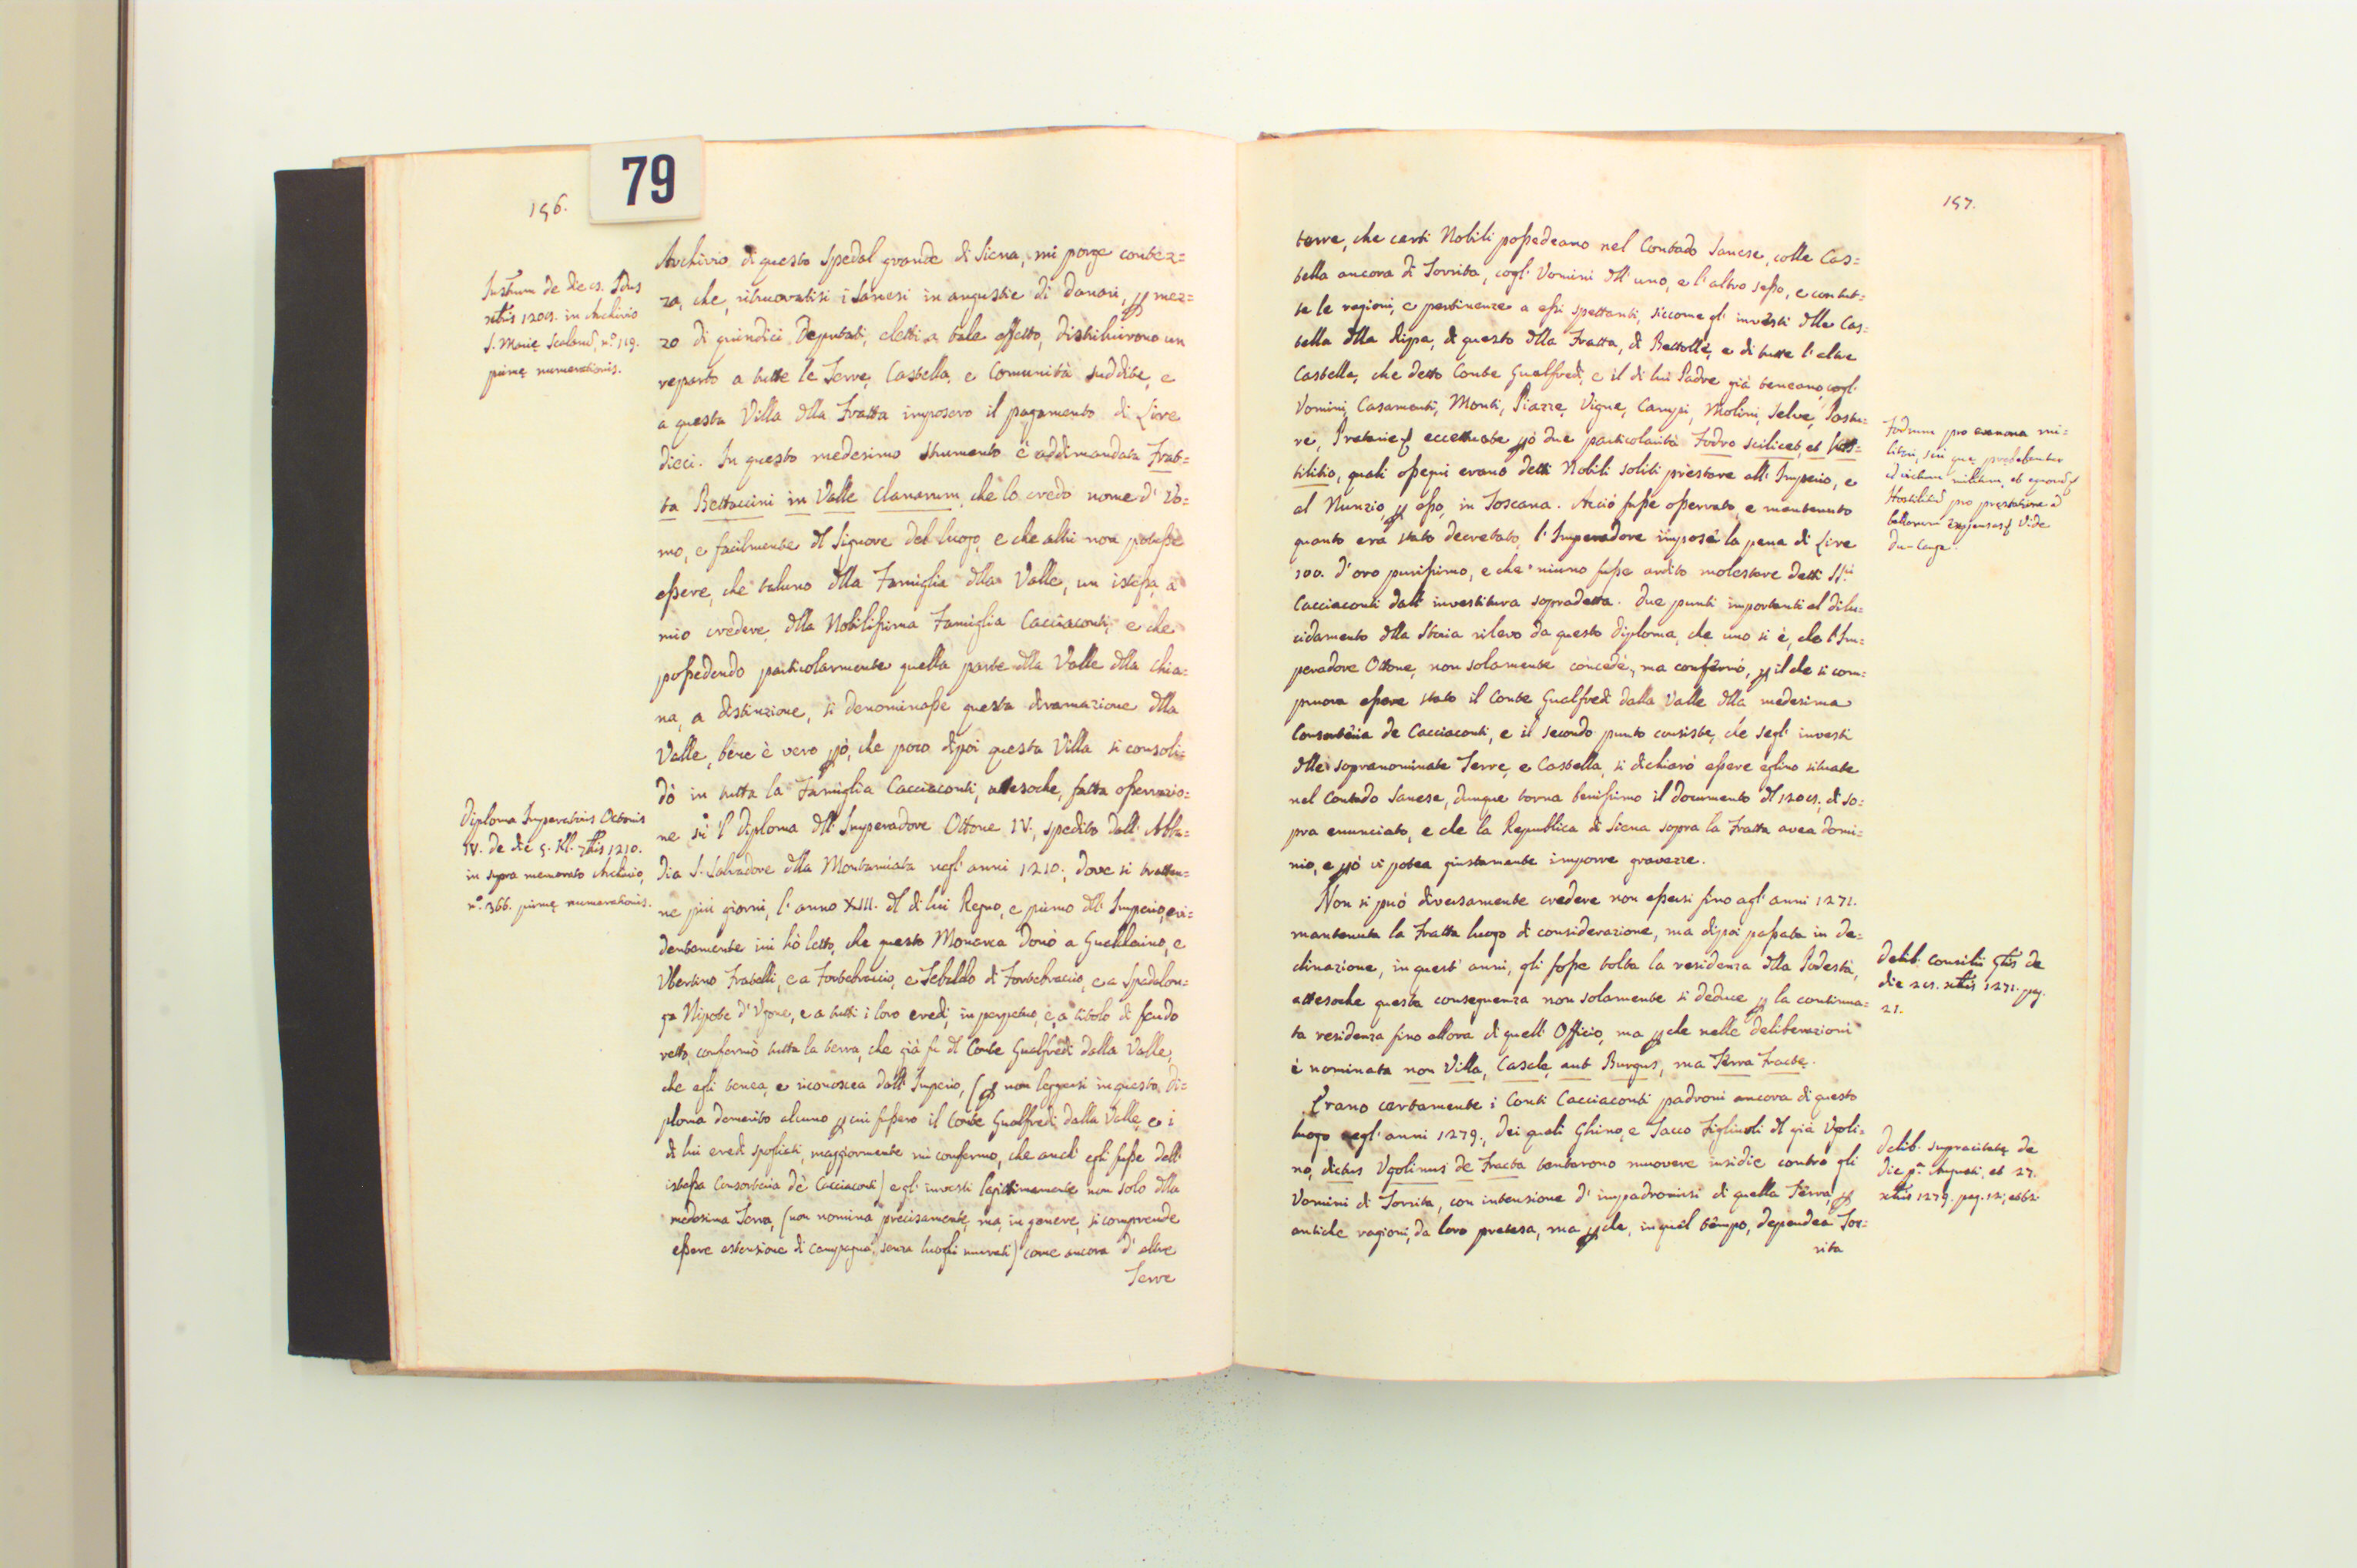 79
156.
Instrum de die cs. Idus
xtbris 1209. in Archivio
S. Marie Scalarum, n.° 119.
prime numerationis.
Archivio di questo Spedal grande di Siena, mi porge contez=
za, che, ritruovatisi i Sanesi in angustie di danari, p mez=
zo di quindici Deputati, eletti a tale effetto, distribuirono un
reparto a tutte le Terre, Castella, e Comunità suddite, e
a questa Villa dlla Fratta imposero il pagamento di Lire
dieci. In questo medesimo strumento è addimandata Frat=
ta Bettaccini in Valle Clanarum, che lo credo nome d' Vo=
mo, e facilmente dl Signore del luogo, e che altri non potesse
essere, che taluno dlla Famiglia dlla Valle, un istessa, a
mio credere, dlla Nobilissima Famiglia Cacciaconti, e che
possedendo particolarmente quella parte dlla Valle dlla Chia=
na, a distinzione, si denominasse questa diramazione dlla
Valle, bene è vero pò, che poco dipoi questa Villa si consoli=
dò in tutta la Famiglia Cacciaconti, attesoche, fatta osservazio=
ne su 'l Diploma dll' Imperadore Ottone IV., spedito dall' Abba=
dia S. Salvadore dlla Montamiata negl' anni 1210., dove si tratten=
ne più giorni, l' anno XIII. dl di lui Regno, e primo dll' Imperio, evi=
dentemente ivi hò letto, che questo Monarca donò a Guelclaino, e
Ubertino Fratelli, e a Fortebraccio, e Tebaldo di Fortebraccio, e a Spadalon=
ga Nipote d' Ugone, e a tutti i loro eredi, in perpetuo, e a titolo di feudo
retto, confermò tutta la terra, che già fu dl Conte Gualfredi dalla Valle,
che egli tenea, e riconoscea dall' Imperio, (p non leggersi in questo Di=
ploma demerito alcuno p cui fussero il Conte Gualfredi dalla Valle, e i
di lui eredi spogliati, maggiormente mi confermo, che anch' egli fusse dell'
istessa Consorteria de' Cacciaconti) e gl' investì legittimamente non solo dlla
medesima Terra, (non nomina precisamente, ma, in genere, si comprende
essere estensione di campagna, senza luoghi murati) come ancora d' altre
Terre
Diploma Imperatoris Octonis
IV. de die 5. Kl. 7tbris 1210.
in supra memorato Archivio,
n.° 366. prime numerationis.
157.
terre, che certi Nobili possedeano nel Contado Sanese, colle Cas=
tella ancora di Torrita, cogl' Vomini dll' uno, e l' altro sesso, e con tut=
te le ragioni, e pertinenze a essi spettanti, siccome gl' investì dlle Cas=
tella dlla Ripa, di questo dlla Fratta, di Bettolle, e di tutte l' altre
Castella, che detto Conte Gualfredi, e il di lui Padre già teneano, cogl'
Vomini, Casamenti, Monti, Piazze, Vigne, Campi, Molini, Selve, Pastu=
re, Praterie eccettuate pò due particolarità Fodro scilicet, et Hos=
tilitio, quali ossequi erano detti Nobili soliti prestare all' Imperio, e
al Nunzio, p esso, in Toscana. Acciò fusse osservato, e mantenuto
quanto era stato decretato, l' Imperadore impose la pena di Lire
100. d' oro purissimo, e che niuno fusse ardito molestare detti SS.ri
Cacciaconti dall' investitura sopradetta. Due punti importanti al dilu=
cidamento dlla Storia rilevo da questo diploma, che uno si è, che l' Im=
peradore Ottone, non solamente concedè, ma confermò, p il che si com=
pruova essere stato il Conte Gualfredi dalla Valle dlla medesima
Consorteria de Cacciaconti, e il secondo punto consiste, che segl' investì
dlle sopranominate Terre, e Castella, si dichiarò essere eglino situate
nel Contado Sanese, dunque torna benissimo il documento dl 1209. di so=
pra enunciato, e che la Republica di Siena sopra la Fratta avea domi=
nio, e pò vi potea giustamente imporre gravezze.
Non si può diversamente credere non essersi fino agl' anni 1271.
mantenuta la Fratta luogo di considerazione, ma dipoi passata in de=
clinazione, in quest' anni, gli fosse tolta la residenza dlla Podestà,
attesoche questa conseguenza non solamente si deduce p la continua=
ta residenza fino allora di quell' Officio, ma p che nelle deliberazioni
è nominata non Villa, Casale, aut Burgus, ma Terra Fracte.
Erano certamente i Conti Cacciaconti padroni ancora di questo
luogo negl' anni 1279., dei quali Ghino, e Iacco Figliuoli dl già Ugoli=
no, dictus Ugolinus de Fracta tentarono muovere insidie contro gli
Vomini di Torrita, con intensione d' impadronirsi di quella Terra, p
antiche ragioni, da loro pretesa, ma p che, in quel tempo, dependea Tor=
rita
Fodrum pro annona mi=
litari, seu que prebebantur
ad victum militum, et equorum
Hostilitium pro prestatione ad
bellorum expensas Vide
Du-Cange.
Delib: Consilii Gtis de
die 29. xtbris 1271. pag.
21.
Delib. supracitate de
die p.a Augusti, et 27.
xtbris 1279. pag. 12, et 62.